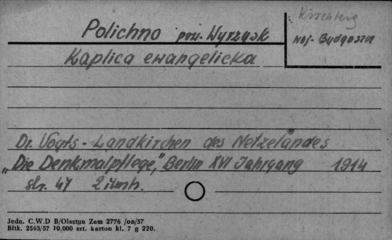 Polichno pow. Wyrzysk
Kirschberg
woj. Bydgoszcz
Kaplica ewangelicka
Dr. Vogts - Landkirchen des Netzelandes
„Die Denkmalpflege", Berlin XVI Jahrgang 1914
str. 47
Jedn. C.W.D B/Olsztyn Zam 2776 /oa/57
Bītk. 2563/57 10.000 szt. karton kl. 7 g 220.